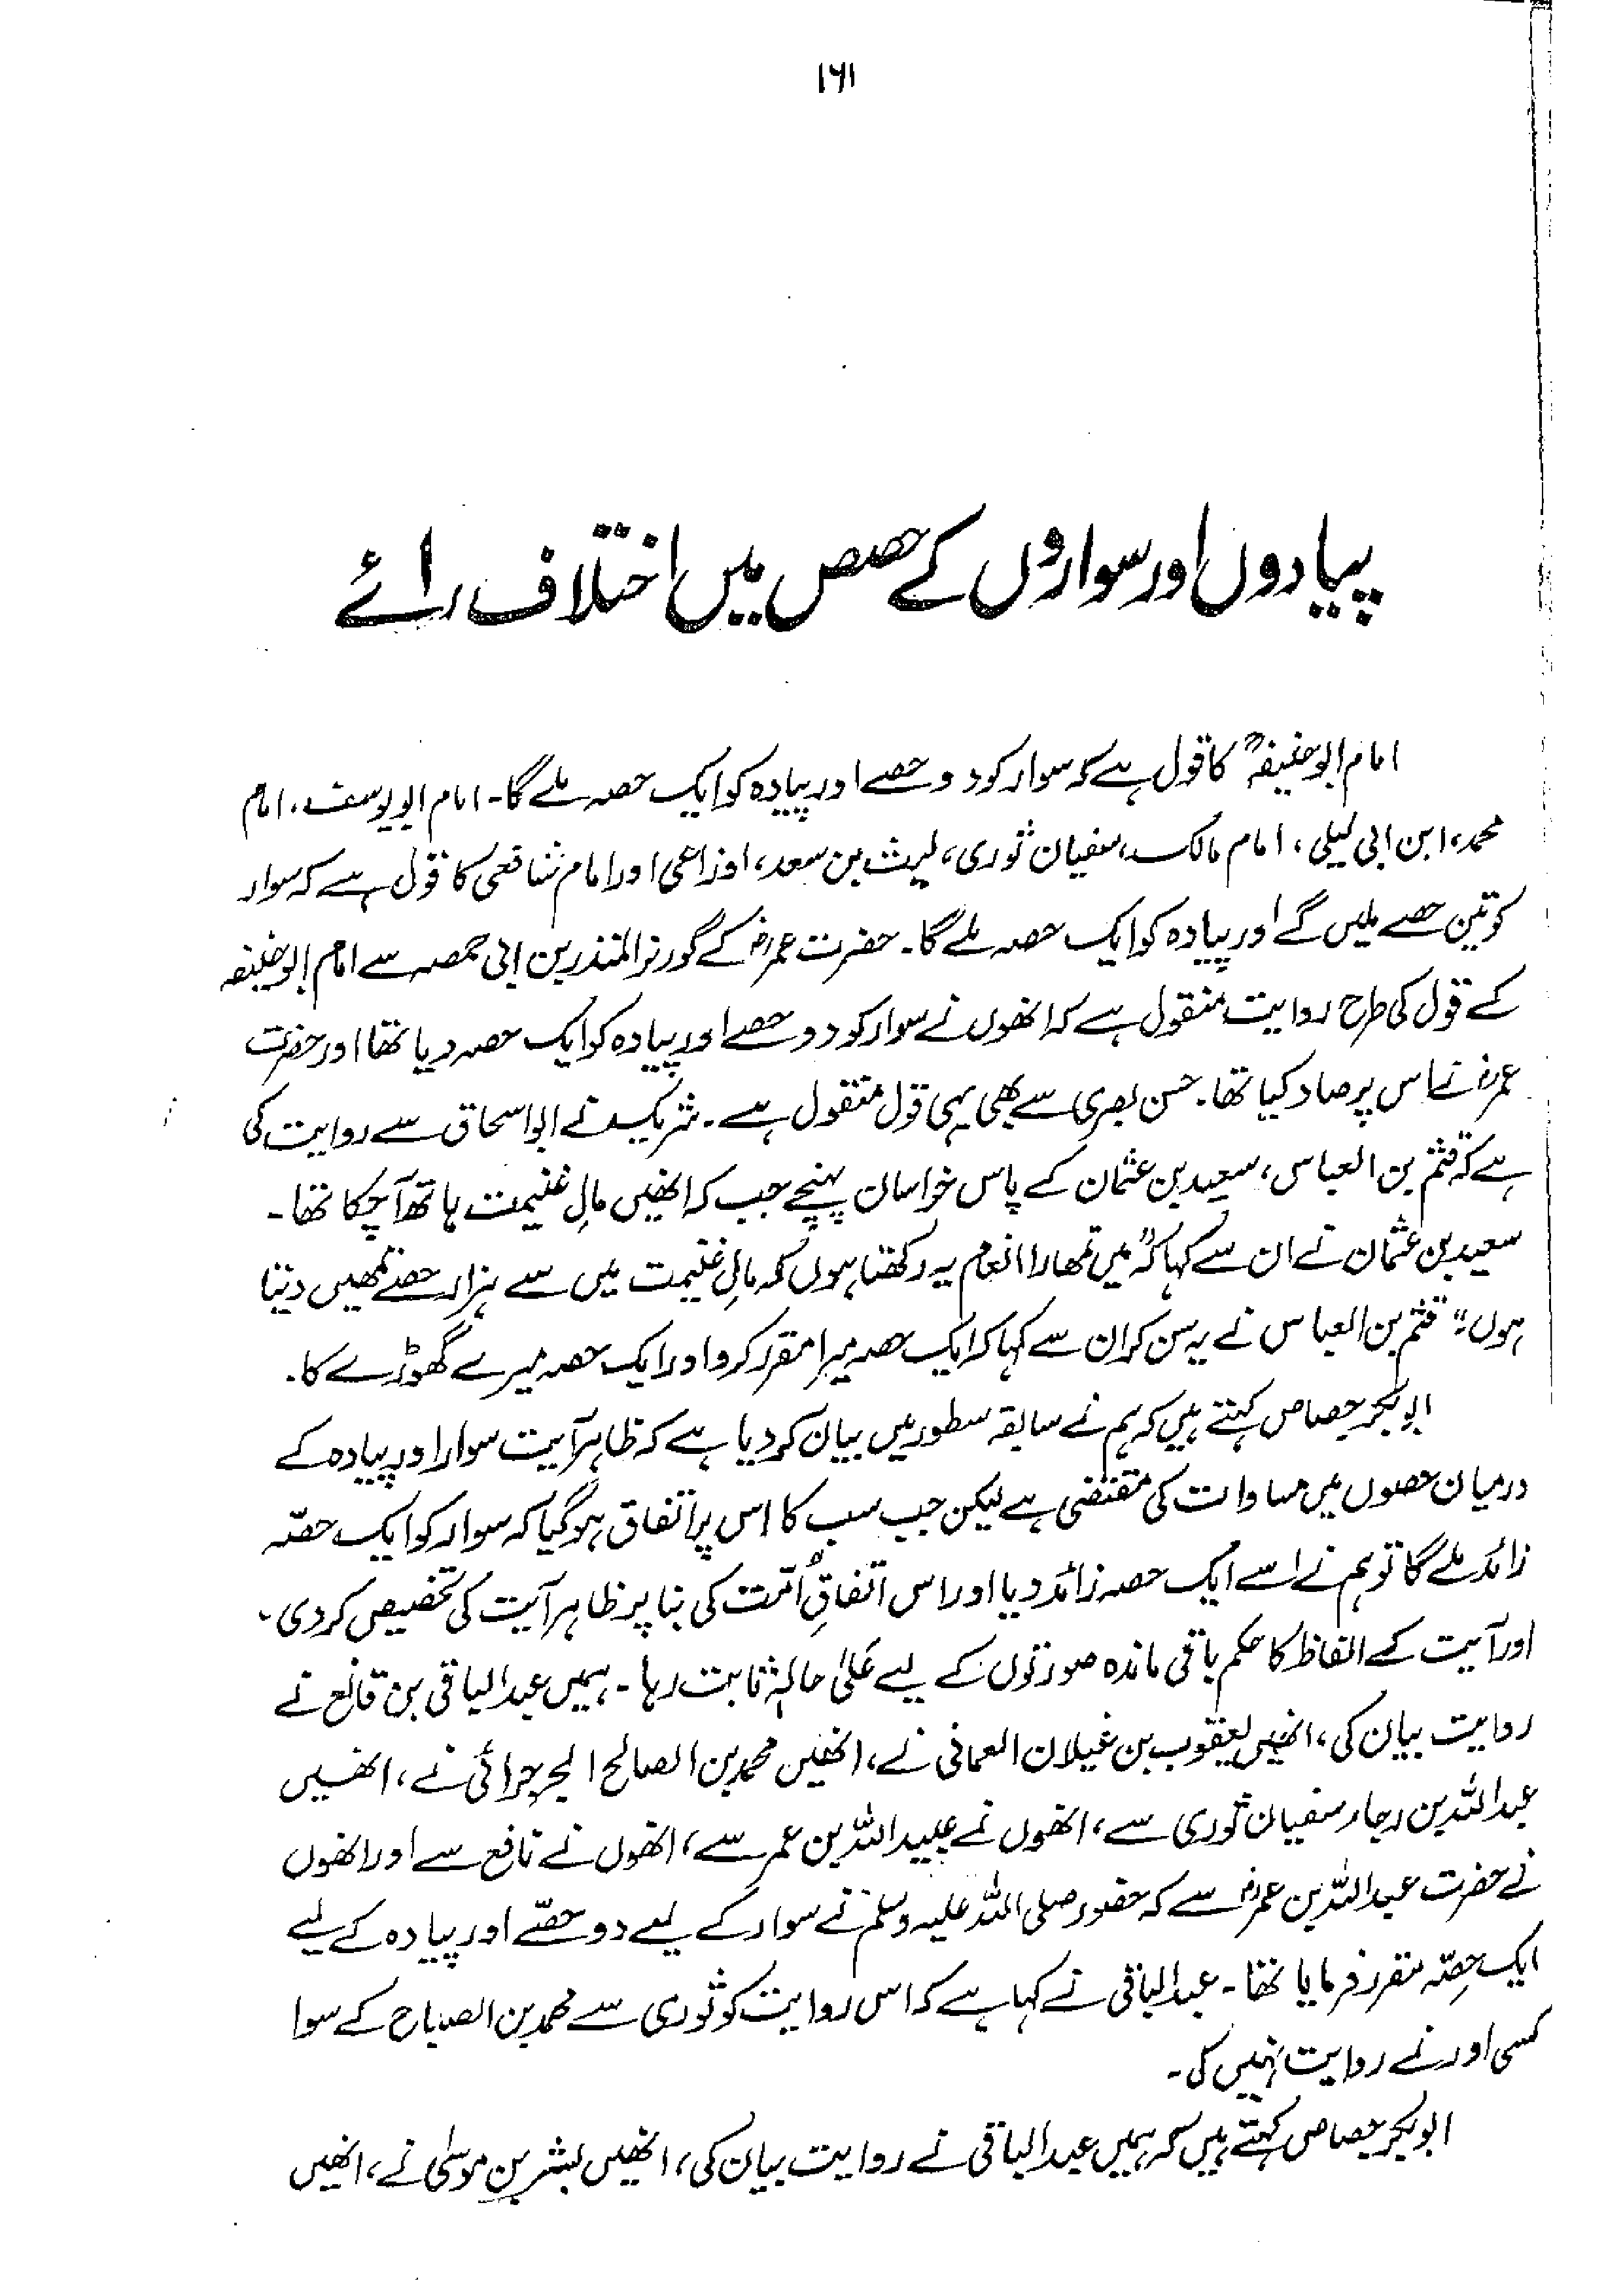 ۱۶۱
پیادوں اور سواروں کے حصص میں اختلاف رائے
امام ابوحنیفہؒ کا قول ہے کہ سوار کو دو حصے اور پیادہ کو ایک حصہ ملے گا۔ امام ابویوسف، امام
محمد، ابن ابی لیلی، امام مالک، سفیان ثوری، لیث بن سعد، اوزاعی اور امام شافعی کا قول ہے کہ سوار
کو تین حصے ملیں گے اور پیادہ کو ایک حصہ ملے گا۔ حضرت عمرؓ کے گورنر المنذر بن ابی حمصہ سے امام ابوحنیفہ
کے قول کی طرح روایت منقول ہے کہ انھوں نے سوار کو دو حصے اور پیادہ کو ایک حصہ دیا تھا اور حضرت
عمرؓ نے اس پر صاد کیا تھا۔ حسن بصری سے بھی یہی قول منقول ہے۔ شریک نے ابو اسحاق سے روایت کی
ہے کہ قثم بن العباس، سعید بن عثمان کے پاس خراسان پہنچے جب کہ انھیں مالِ غنیمت ہاتھ آچکا تھا۔
سعید بن عثمان نے ان سے کہا کہ "میں تمھارا انعام یہ رکھتا ہوں کہ مالِ غنیمت میں سے ہزار حصے تمھیں دیتا
ہوں؛" قثم بن العباس نے یہ سن کر ان سے کہا کہ ایک حصہ میرا مقرر کرو اور ایک حصہ میرے گھوڑے کا۔
ابوبکر جصاص کہتے ہیں کہ ہم نے سابقہ سطور میں بیان کر دیا ہے کہ ظاہر آیت سوار اور پیادہ کے
درمیان حصوں میں مساوات کی مقتضی ہے لیکن جب سب کا اس پر اتفاق ہوگیا کہ سوار کو ایک حصّہ
زائد ملے گا تو ہم نے اسے ایک حصہ زائد دیا اور اس اتفاقِ اُمّت کی بنا پر ظاہر آیت کی تخصیص کر دی،
اور آیت کے الفاظ کا حکم باقی ماندہ صورتوں کے لیے عَلیٰ حالہٖ ثابت رہا۔ ہمیں عبدالباقی بن قانع نے
روایت بیان کی، انھیں یعقوب بن غیلان العمانی نے، انھیں محمد بن الصالح الجرجرائی نے، انھیں
عبداللہ بن رجاء سفیان ثوری سے، انھوں نے عبیداللہ بن عمر سے، انھوں نے نافع سے اور انھوں
نے حضرت عبداللہ بن عمرؓ سے کہ حضور صلی اللہ علیہ وسلم نے سوار کے لیے دو حصّے اور پیادہ کے لیے
ایک حِصّہ مقرر فرمایا تھا۔ عبدالباقی نے کہا ہے کہ اس روایت کو ثوری سے محمد بن الصباح کے سوا
کسی اور نے روایت نہیں کی۔
ابوبکر جصاص کہتے ہیں کہ ہمیں عبدالباقی نے روایت بیان کی، انھیں بشر بن موسٰی نے، انھیں